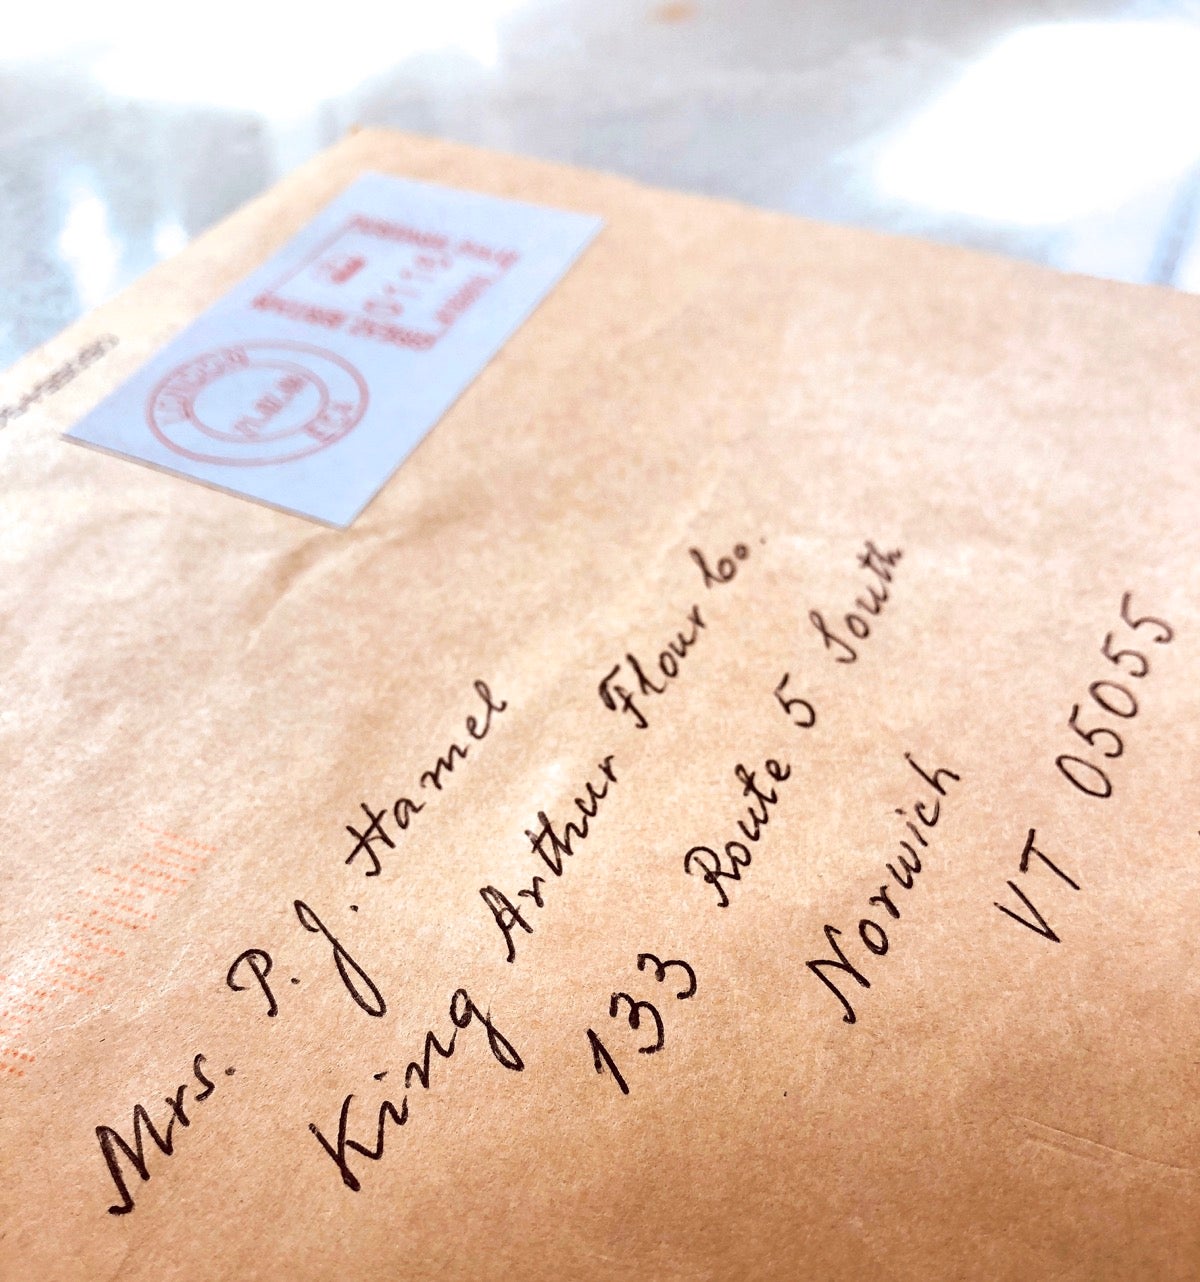 LONDON
E.C.4
Mrs. P. J. Hamel
King Arthur Flour Co.
133 Route 5 South
Norwich
VT 05055